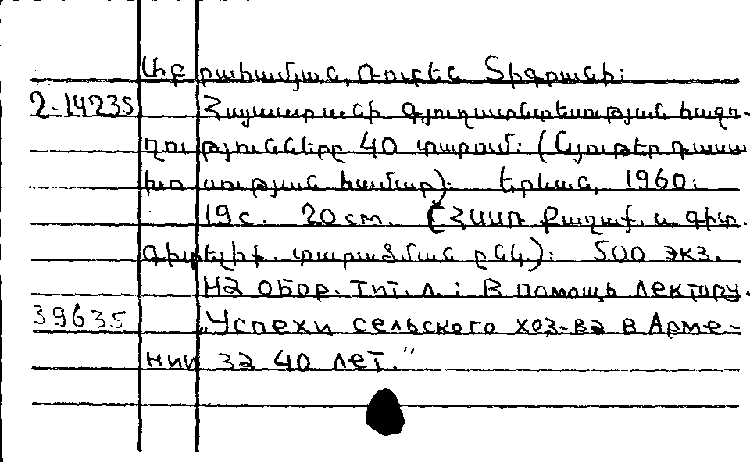 Աբրահամյան, Ռուբեն Տիգրանի:
2-14235 Հայաստանի գյուղատնտեսության հաջո-
ղությունները 40 տարում: (Նյութեր դասա
խոսության համար): Երևան, 1960:
19 с. 20 см. (ՀՍՍՌ Քաղաք. և գիտ.
գիտելիք. տարածման ընկ.): 500 экз.
На обор. тит. л.: В помощь лектору.
39635 „Успехи сельского хоз-ва в Арме-
нии за 40 лет."